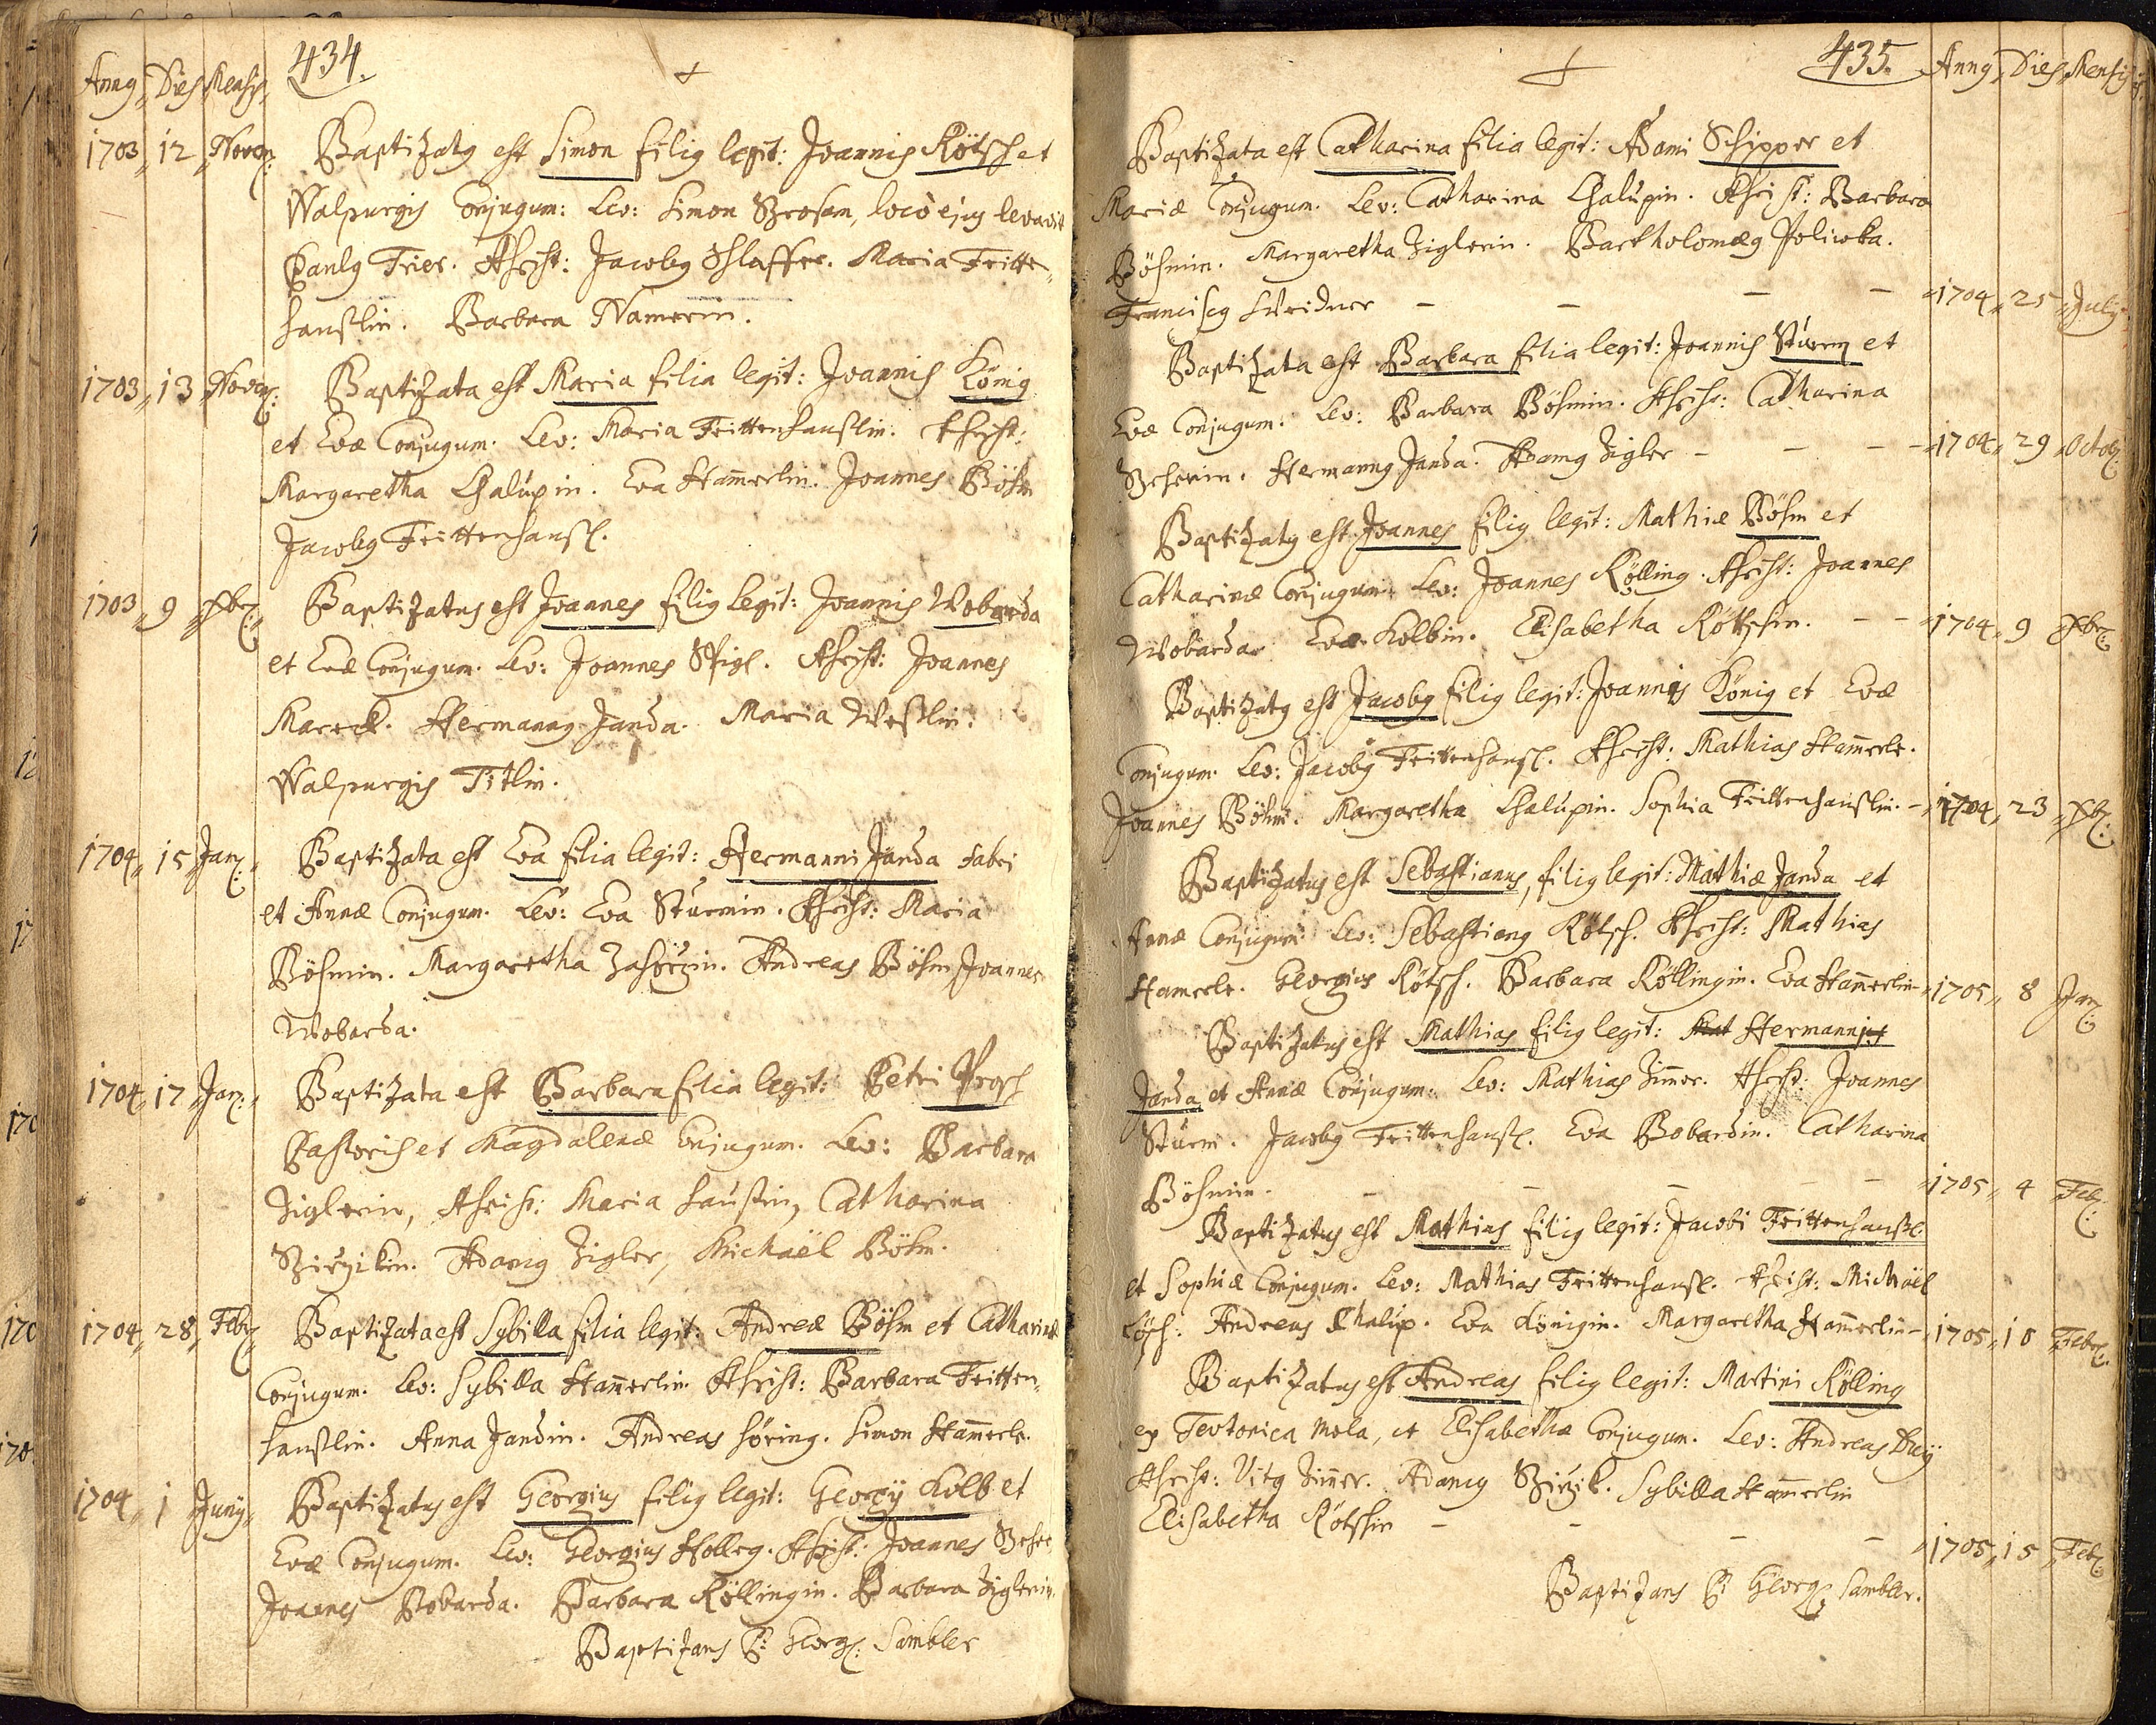 434.
Annus Dies Mensis
1703 12 Novem: Baptizatus est Simon filius legit: Joannis Kötsch et
Walpurgis Conjugum: Lev: Simon Brosam, locò ejus levavit
Paulus Trier. Assist: Jacobus Schlaffer. Maria Fritten-
hanslin. Barbara Hamerin.
1703 13 Novem: Baptizata est Maria filia legit: Joannis König
et Evæ Conjugum. Lev: Maria Frittenhanslin. Assist:
Margaretha Chalupin. Eva Ham̄erlin. Joannes Böhm
Jacobus Frittenhansl.
1703 9 Xbr: Baptizatus est Joannes filius legit: Joannis Wobarda
et Evæ Conjugum. Lev: Joannes Spigl. Assist: Joannes
Mareck. Hermannus Janda. Maria Westlin.
Walpurgis Titlin.
1704 15 Jan: Baptizata est Eva filia legit: Hermanni Janda Fabri
et Annæ Conjugum. Lev: Eva Sturmin. Assist: Maria
Böhmin. Margaretha Zahorzin. Andreas Böhm, Joannes
Wobarda.
1704 17 Jan: Baptizata est Barbara filia legit: Petri Prosch
Pastoris et Magdalenæ Conjugum. Lev: Barbara
Ziglerin, Assist: Maria Haustin, Catharina
Adamus Zigler, Michaël Böhm.
1704 28 Feb: Baptizata est Sybilla filia legit: Andreæ Böhm et Catharinæ
Conjugum. Lev: Sybilla Ham̄erlin Assist: Barbara Fritten-
hanslin. Anna Jandin. Andreas Höring. Simon Ham̄erle.
1704 1 Junÿ Baptizatus est Georgius filius legit: Georgÿ Kolb et
Evæ Conjugum. Lev: Georgius Assist: Joannes
Joannes Bobarda. Barbara Röllingin. Barbara Ziglerin.
Baptizans P: Georg: Sambler
435. Annus Dies Mensis
Baptizata est Catharina filia legit: Adami Schipper et
Mariæ Conjugum. Lev: Catharina Chalupin. Assist: Barbara
Böhmin. Margaretha Ziglerin. Bartholomæus Poliwka.
Franciscus Weidner - - - - 1704 25 Julÿ
Baptizata est Barbara filia legit: Joannis Sturm et
Evæ Conjugum. Lev: Barbara Böhmin. Assist: Catharina
Hermannus Janda. Adamus Zigler - - - 1704 29 Octob:
Baptizatus est Joannes filius legit: Mathiæ Böhm et
Catharinæ Conjugum. Lev: Joannes Rölling. Assist: Joannes
Wobarda. Eva Kolbin. Elisabetha Kötschin. - - 1704 9 Xbr:
Baptizatus est Jacobus filius legit: Joannis König et Evæ
Conjugum. Lev: Jacobus Frittenhansl. Assist: Mathias Ham̄erle.
Joannes Böhm. Margaretha Chalupin. Sophia Frittenhanslin. - 1704 23 Xb:
Baptizatus est Sebastianus, filius legit: Mathiæ Janda et
Annæ Conjugum. Lev: Sebastianus Kötsch. Assist: Mathias
Hamerle. Georgius Kötsch. Barbara Röllingin. Eva Ham̄erlin - 1705 8 Jan:
Baptizatus est Mathias filius legit: Mat Hermanni
Janda et Annæ Conjugum. Lev: Mathias Zim̄er. Assist: Joannes
Sturm. Jacobus Frittenhansl. Eva Bobardin. Catharina
Böhmin. - - - - 1705 4 Feb:
Baptizatus est Mathias filius legit: Jacobi Frittenhansl
et Sophiæ Conjugum. Lev: Mathias Frittenhansl. Assist: Michaël
Andreas Chalup. Eva Königin. Margaretha Ham̄erlin - 1705 10 Feb:
Baptizatus est Andreas filius legit: Martini Rölling
ex Teutonica mola, et Elisabethæ Conjugum. Lev: Andreas
Assist: Vitus Zim̄er. Adamus Sybilla Ham̄erlin
Elisabetha Kötschin - - - - 1705 15 Feb:
Baptizans P: Georg: Sambler.